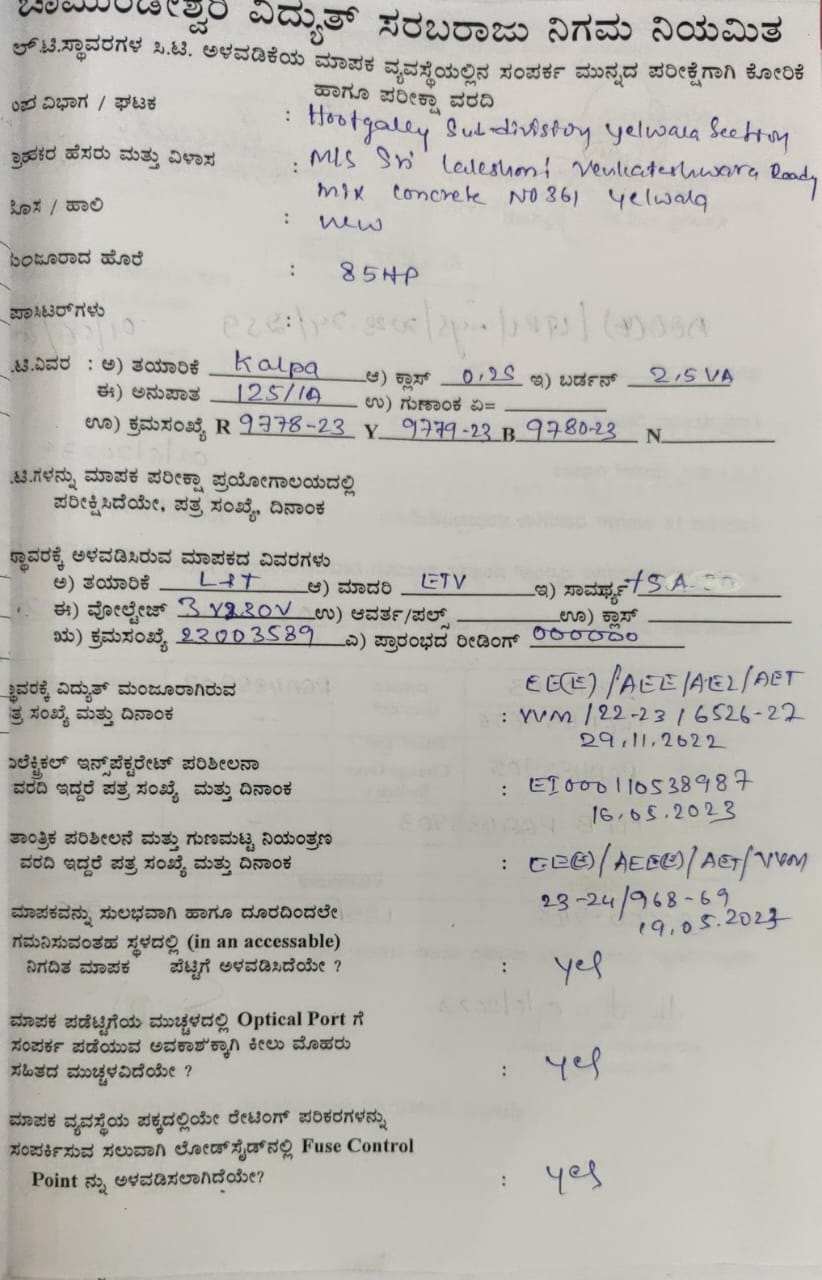 ಚಾಮುಂಡೇಶ್ವರಿ ವಿದ್ಯುತ್ ಸರಬರಾಜು ನಿಗಮ ನಿಯಮಿತ
ಲ್.ಟಿ.ಸ್ಥಾವರಗಳ ಸಿ.ಟಿ. ಅಳವಡಿಕೆಯ ಮಾಪಕ ವ್ಯವಸ್ಥೆಯಲ್ಲಿನ ಸಂಪರ್ಕ ಮುನ್ನದ ಪರೀಕ್ಷೆಗಾಗಿ ಕೋರಿಕೆ
ಹಾಗೂ ಪರೀಕ್ಷಾ ವರದಿ
ಉಪ ವಿಭಾಗ / ಘಟಕ : Hootgally Sub-division Yelwala Section
ಗ್ರಾಹಕರ ಹೆಸರು ಮತ್ತು ವಿಳಾಸ : M/S Sri Lakshmi Venkateshwara Ready
mix concrete NO 361 Yelwala
ಹೊಸ / ಹಾಲಿ : New
ಮಂಜೂರಾದ ಹೊರೆ : 85HP
ಪಾಸಿಟರ್‌ಗಳು :
.ಟಿ.ವಿವರ : ಅ) ತಯಾರಿಕೆ Kalpa ಆ) ಕ್ಲಾಸ್ 0.2S ಇ) ಬರ್ಡನ್ 2.5 VA
ಈ) ಅನುಪಾತ 125/1A ಉ) ಗುಣಾಂಕ ಏ=
ಊ) ಕ್ರಮಸಂಖ್ಯೆ R 9778-23 Y 9779-23 B 9780-23 N
.ಟಿ.ಗಳನ್ನು ಮಾಪಕ ಪರೀಕ್ಷಾ ಪ್ರಯೋಗಾಲಯದಲ್ಲಿ
ಪರೀಕ್ಷಿಸಿದೆಯೇ, ಪತ್ರ ಸಂಖ್ಯೆ, ದಿನಾಂಕ
ಸ್ಥಾವರಕ್ಕೆ ಅಳವಡಿಸಿರುವ ಮಾಪಕದ ವಿವರಗಳು
ಅ) ತಯಾರಿಕೆ L&T ಆ) ಮಾದರಿ ETV ಇ) ಸಾಮರ್ಥ್ಯ
ಈ) ವೋಲ್ಟೇಜ್ 3 V220V ಉ) ಆವರ್ತ/ಪಲ್ಸ್ ಊ) ಕ್ಲಾಸ್
ಋ) ಕ್ರಮಸಂಖ್ಯೆ 23003589 ಎ) ಪ್ರಾರಂಭದ ರೀಡಿಂಗ್ 000000
ಸ್ಥಾವರಕ್ಕೆ ವಿದ್ಯುತ್ ಮಂಜೂರಾಗಿರುವ EE(E)/AEE/AE2/AET
ತ್ರ ಸಂಖ್ಯೆ ಮತ್ತು ದಿನಾಂಕ : VVM/22-23/6526-27
29.11.2022
ಎಲೆಕ್ಟ್ರಿಕಲ್ ಇನ್ಸ್‌ಪೆಕ್ಟರೇಟ್ ಪರಿಶೀಲನಾ
ವರದಿ ಇದ್ದರೆ ಪತ್ರ ಸಂಖ್ಯೆ ಮತ್ತು ದಿನಾಂಕ : EI000110538987
16.05.2023
ತಾಂತ್ರಿಕ ಪರಿಶೀಲನೆ ಮತ್ತು ಗುಣಮಟ್ಟ ನಿಯಂತ್ರಣ
ವರದಿ ಇದ್ದರೆ ಪತ್ರ ಸಂಖ್ಯೆ ಮತ್ತು ದಿನಾಂಕ : EE(E)/AEE(E)/AET/VVM
23-24/968-69
19.05.2023
ಮಾಪಕವನ್ನು ಸುಲಭವಾಗಿ ಹಾಗೂ ದೂರದಿಂದಲೇ
ಗಮನಿಸುವಂತಹ ಸ್ಥಳದಲ್ಲಿ (in an accessable)
ನಿಗದಿತ ಮಾಪಕ ಪೆಟ್ಟಿಗೆ ಅಳವಡಿಸಿದೆಯೇ ? : yes
ಮಾಪಕ ಪಡೆಟ್ಟಿಗೆಯ ಮುಚ್ಚಳದಲ್ಲಿ Optical Port ಗೆ
ಸಂಪರ್ಕ ಪಡೆಯುವ ಅವಕಾಶಕ್ಕಾಗಿ ಕೀಲು ಮೊಹರು
ಸಹಿತದ ಮುಚ್ಚಳವಿದೆಯೇ ? : yes
ಮಾಪಕ ವ್ಯವಸ್ಥೆಯ ಪಕ್ಕದಲ್ಲಿಯೇ ರೇಟಿಂಗ್ ಪರಿಕರಗಳನ್ನು
ಸಂಪರ್ಕಿಸುವ ಸಲುವಾಗಿ ಲೋಡ್‌ಸೈಡ್‌ನಲ್ಲಿ Fuse Control
Point ನ್ನು ಅಳವಡಿಸಲಾಗಿದೆಯೇ? : yes